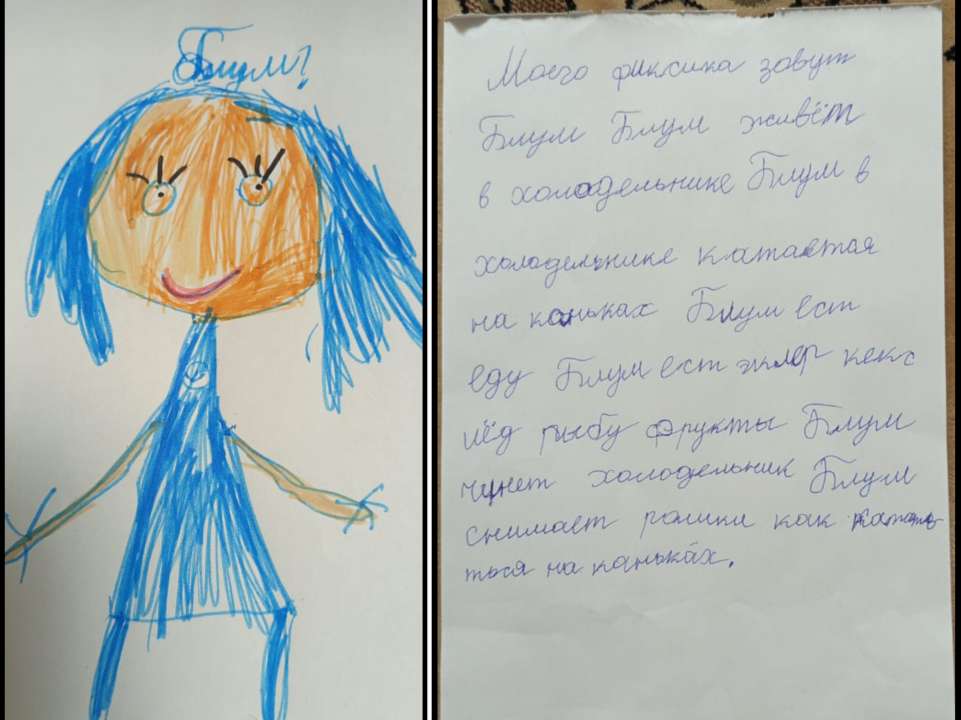 Блум!
Моего фиксика зовут
Блум Блум живёт
в холодельнике Блум в
холодельнике катается
на коньках Блум ест
еду Блум ест эклер кекс
лёд рыбу фрукты Блум
чинет холодельник Блум
снимает ролики как ката
ться на каньках.